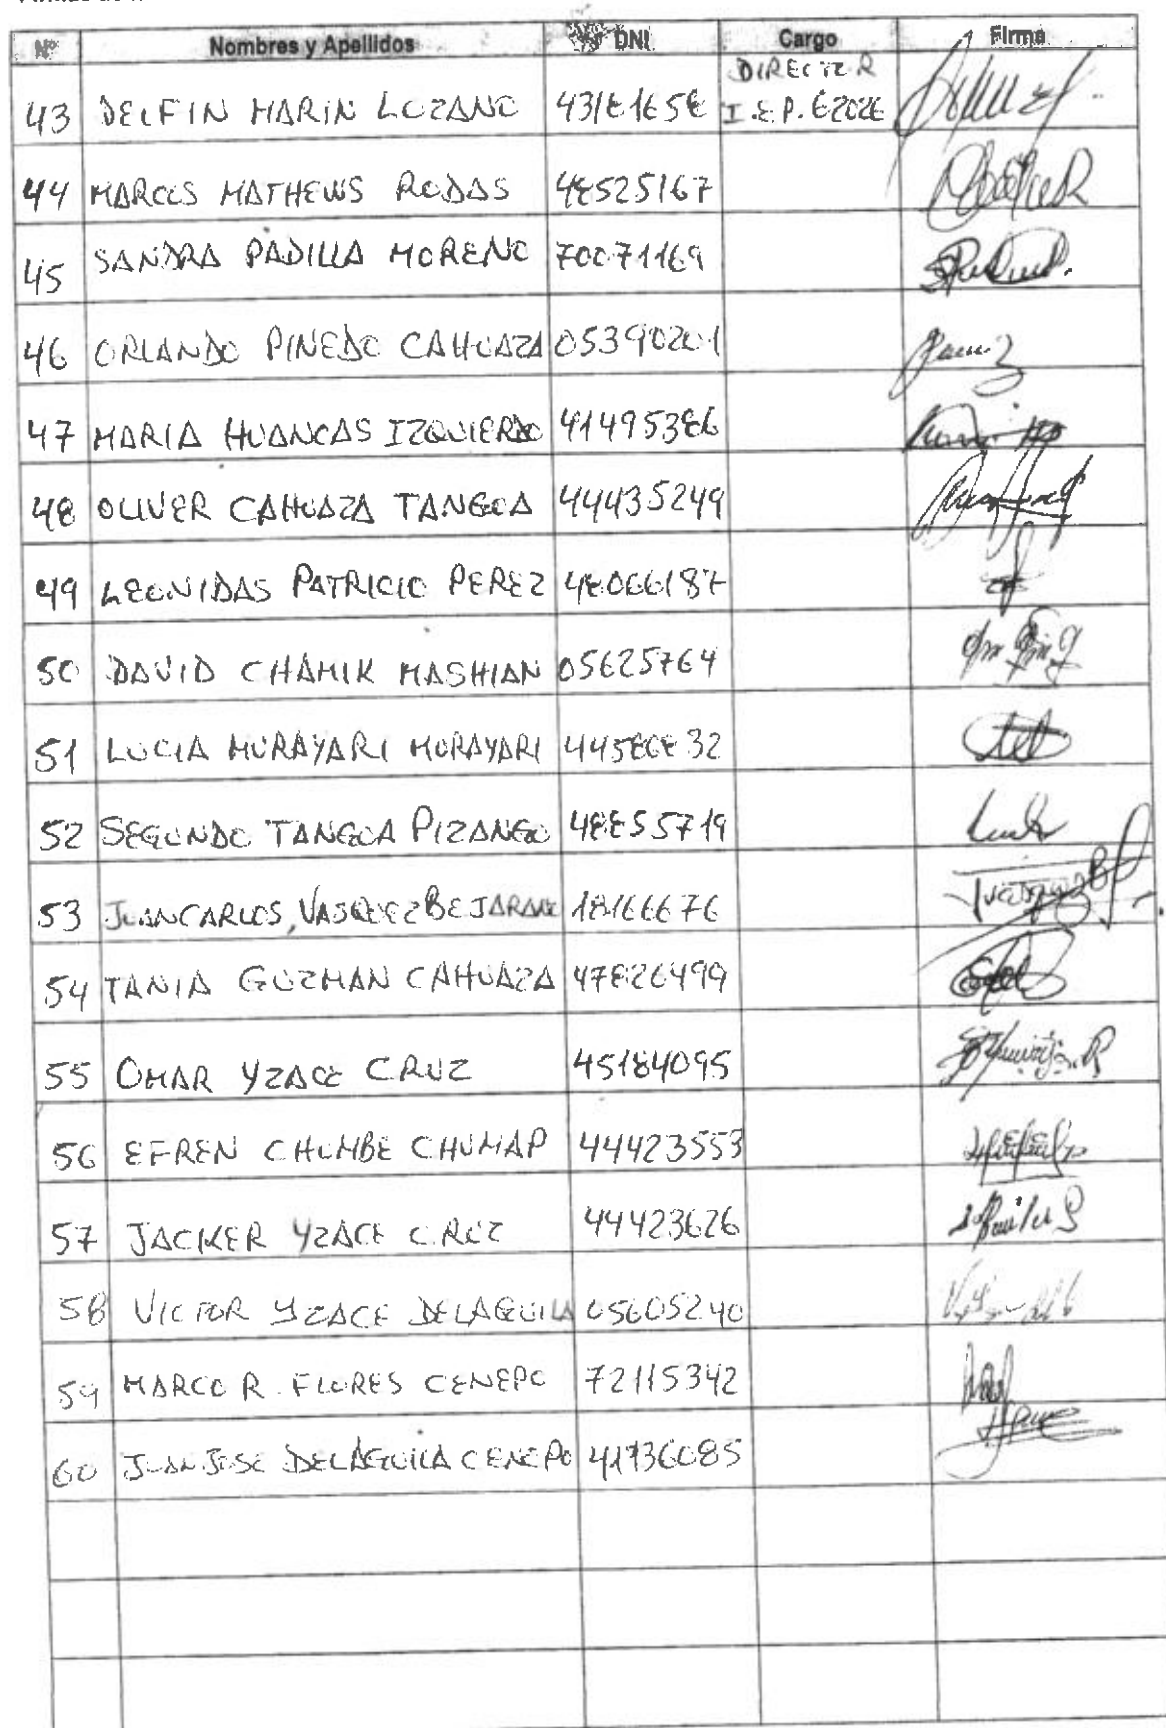 Nº Nombres y Apellidos DNI Cargo Firma
43 DELFIN MARIN LOZANO 43181658 DIRECTOR
I.E.P. 62026
44 MARCOS MATHEWS RODAS 48525167
45 SANDRA PADILLA MORENO 70071169
46 ORLANDO PINEDO CAHUAZA 05390201
47 MARIA HUANCAS IZQUIERDO 41495386
48 OLIVER CAHUAZA TANGOA 44435249
49 LEONIDAS PATRICIO PEREZ 48066187
50 DAVID CHAMIK MASHIAN 05625764
51 LUCIA MURAYARI MURAYARI 44586832
52 SEGUNDO TANGOA PIZANGO 48855719
53 JUAN CARLOS, VASQUEZ BEJARANO 18166676
54 TANIA GUZMAN CAHUAZA 47826499
55 OMAR YZACE CRUZ 45184095
56 EFREN CHUMBE CHUMAP 44423553
57 JACKER YZACE CRUZ 44423626
58 VICTOR YZACE DELAGUILA 05605240
59 MARCO R. FLORES CENEPO 72115342
60 JUAN JOSE DELAGUILA CENEPO 41736085